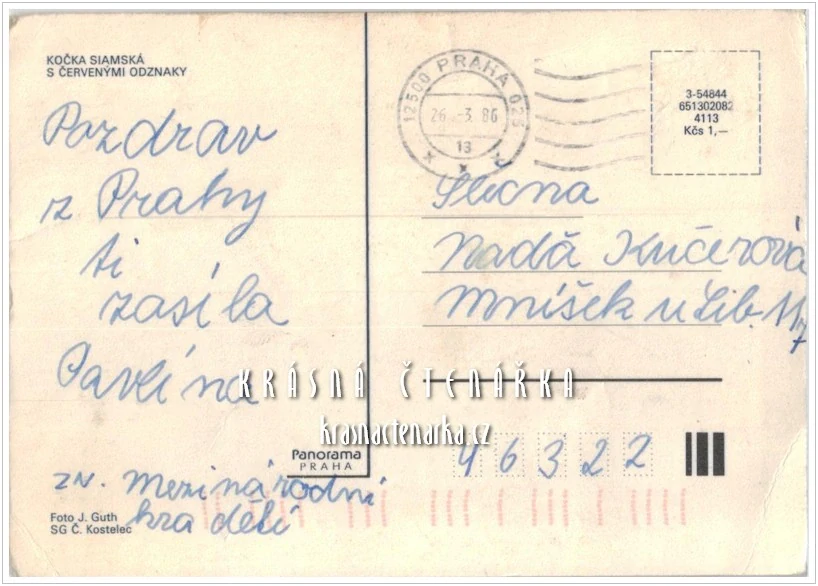 KOČKA SIAMSKÁ
S ČERVENÝMI ODZNAKY
Pozdrav
z Prahy
ti
zasíla
Pavlína
zn. Mezinárodní
hra dětí
Foto J. Guth
SG Č. Kostelec
Panorama
PRAHA
12500 PRAHA 025
26.-3.86
13
3-54844
651302082
4113
Kčs 1,—
Slečna
Naďa Kučerová
Mníšek u Lib. 117
KRÁSNÁ ČTENÁŘKA
krasnactenarka.cz
46322